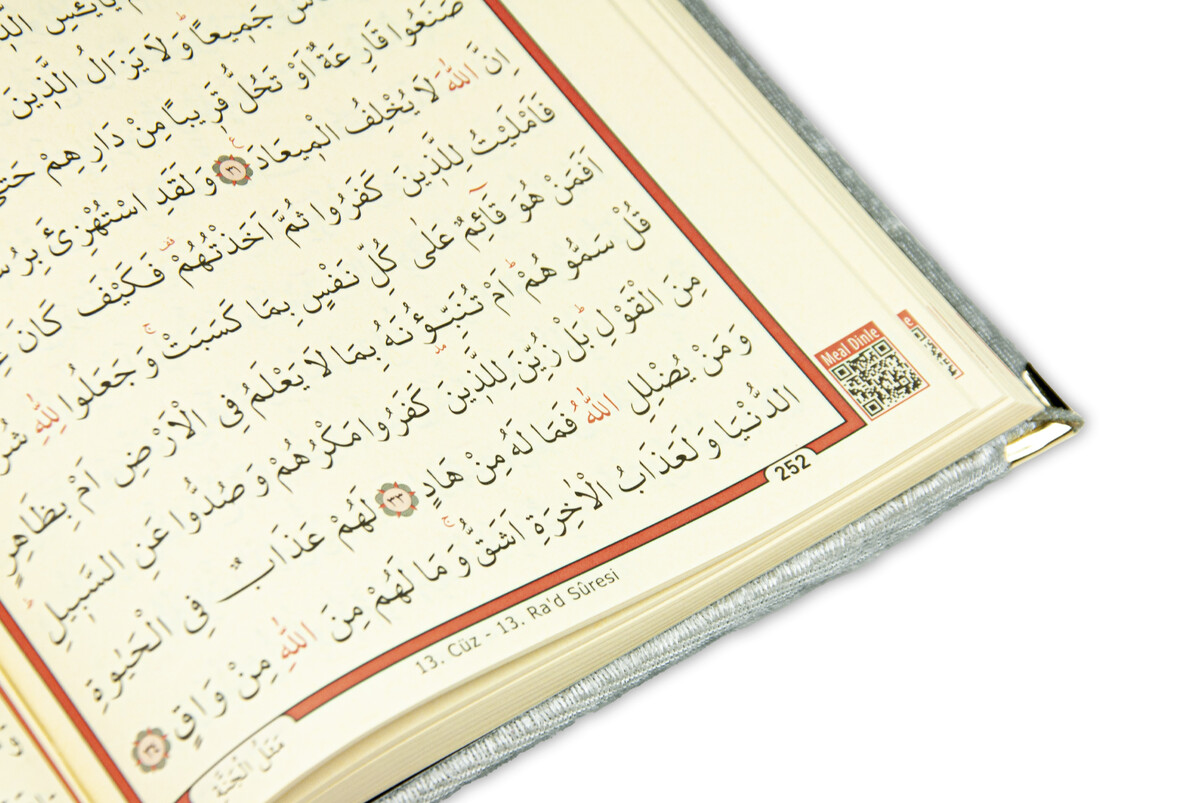 جَمٖيعاًۜ وَلَا يَزَالُ الَّذٖينَ
صَنَعُوا قَارِعَةٌ اَوْ تَحُلُّ قَرٖيباً مِنْ دَارِهِمْ حَتّٰى
اِنَّ اللّٰهَ لَا يُخْلِفُ الْمٖيعَادَ ﴿٣١﴾ وَلَقَدِ اسْتُهْزِئَ
فَاَمْلَيْتُ لِلَّذٖينَ كَفَرُوا ثُمَّ اَخَذْتُهُمْ فَكَيْفَ كَانَ
اَفَمَنْ هُوَ قَٓائِمٌ عَلٰى كُلِّ نَفْسٍ بِمَا كَسَبَتْۚ وَجَعَلُوا لِلّٰهِ
قُلْ سَمُّوهُمْۜ اَمْ تُنَبِّؤُ۫نَهُ بِمَا لَا يَعْلَمُ فِي الْاَرْضِ اَمْ بِظَاهِرٍ
مِنَ الْقَوْلِۜ بَلْ زُيِّنَ لِلَّذٖينَ كَفَرُوا مَكْرُهُمْ وَصُدُّوا عَنِ السَّبٖيلِۜ
وَمَنْ يُضْلِلِ اللّٰهُ فَمَا لَهُ مِنْ هَادٍ ﴿٣٣﴾ لَهُمْ عَذَابٌ فِي الْحَيٰوةِ
الدُّنْيَا وَلَعَذَابُ الْاٰخِرَةِ اَشَقُّۚ وَمَا لَهُمْ مِنَ اللّٰهِ مِنْ وَاقٍ ﴿٣٤﴾
252
13. Cüz - 13. Ra'd Sûresi
مَثَلُ الْجَنَّةِ
Meal Dinle